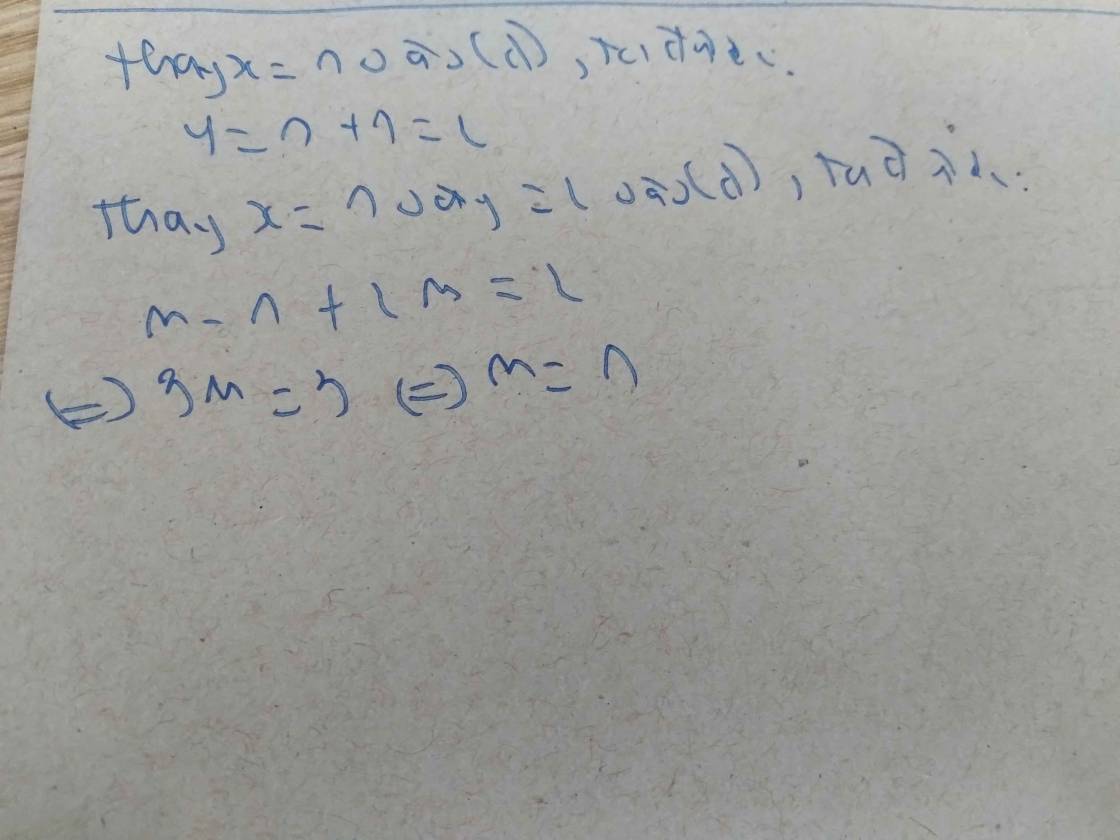 thay x = 1 vào (d), ta được:
y = 1 + 1 = 2
thay x = 1 và y = 2 vào (d), ta được:
m - 1 + 2m = 2
<=> 3m = 3 <=> m = 1